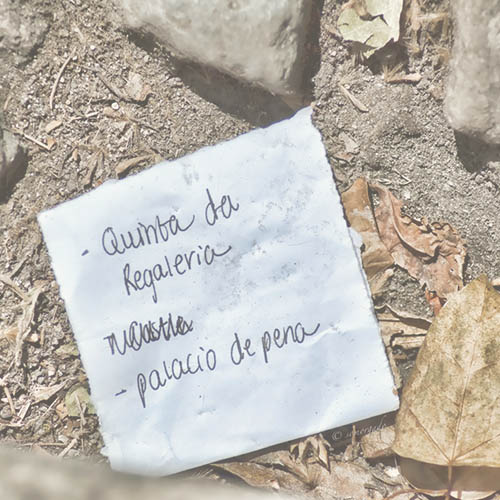 - Quinta da
Regaleria
- palacio de pena